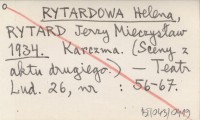 RYTARDOWA Helena,
RYTARD Jerzy Mieczysław
1934. Karczma. (Sceny z
aktu drugiego.) — Teatr
Lud. 26, nr : 56-67.